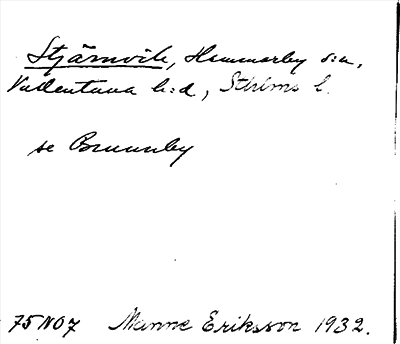 Stjärnvik, Hammarby s:n,
Vallentuna h:d, Sthlms l.
se Brunnby
75 NO 7 Manne Eriksson 1932.